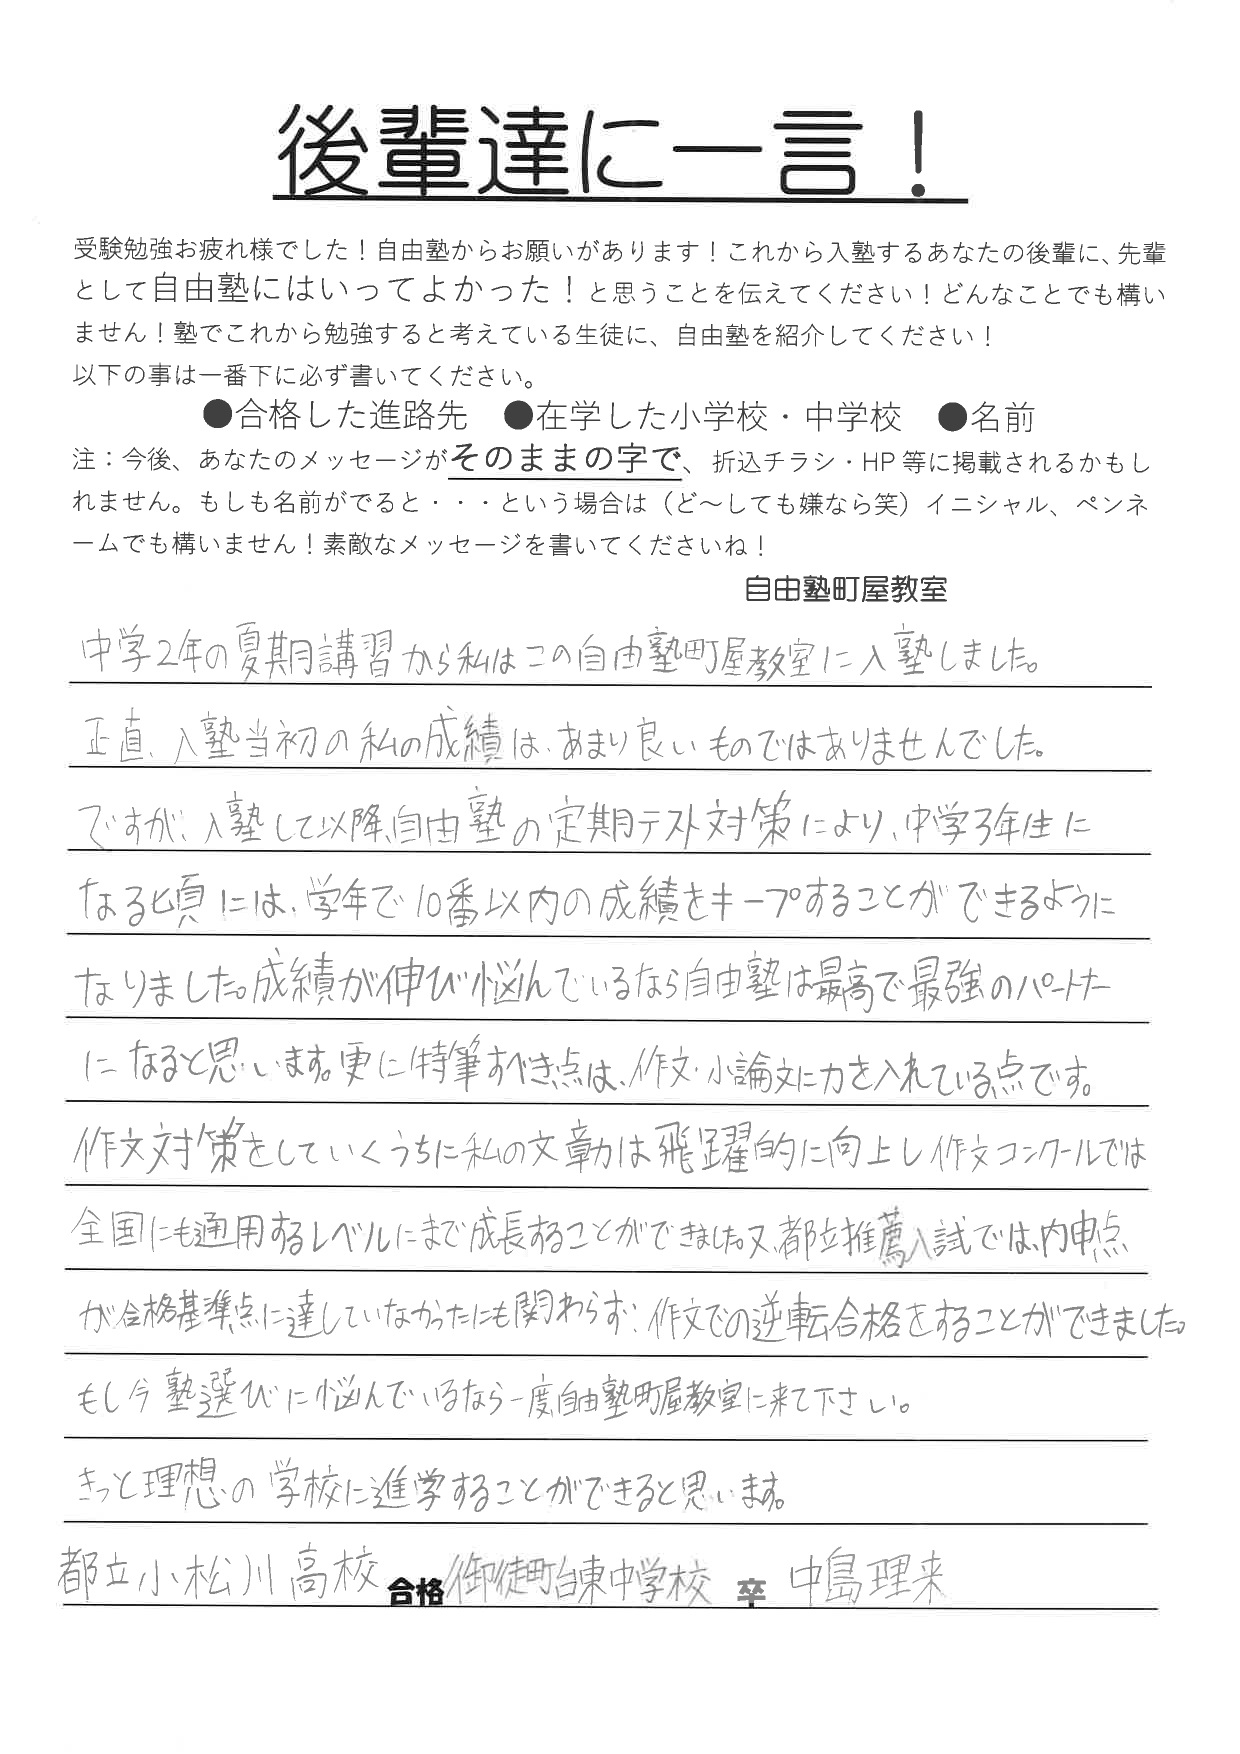 後輩達に一言！
受験勉強お疲れ様でした！自由塾からお願いがあります！これから入塾するあなたの後輩に、先輩
として自由塾にはいってよかった！と思うことを伝えてください！どんなことでも構い
ません！塾でこれから勉強すると考えている生徒に、自由塾を紹介してください！
以下の事は一番下に必ず書いてください。
●合格した進路先　●在学した小学校・中学校　●名前
注：今後、あなたのメッセージがそのままの字で、折込チラシ・HP 等に掲載されるかもし
れません。もしも名前がでると・・・という場合は（ど～しても嫌なら笑）イニシャル、ペンネ
ームでも構いません！素敵なメッセージを書いてくださいね！
自由塾町屋教室
中学2年の夏期講習から私はこの自由塾町屋教室に入塾しました。
正直、入塾当初の私の成績は、あまり良いものではありませんでした。
ですが、入塾して以降、自由塾の定期テスト対策により、中学3年生に
なる頃には、学年で10番以内の成績をキープすることができるように
なりました。成績が伸び悩んでいるなら自由塾は最高で最強のパートナー
になると思います。更に特筆すべき点は、作文・小論文に力を入れている点です。
作文対策をしていくうちに私の文章力は飛躍的に向上し作文コンクールでは
全国にも通用するレベルにまで成長することができました。又、都立推薦入試では、内申点
が合格基準点に達していなかったにも関わらず、作文での逆転合格をすることができました。
もし今塾選びに悩んでいるなら一度自由塾町屋教室に来て下さい。
きっと理想の学校に進学することができると思います。
都立小松川高校 合格 御徒町台東中学校 卒 中島理来